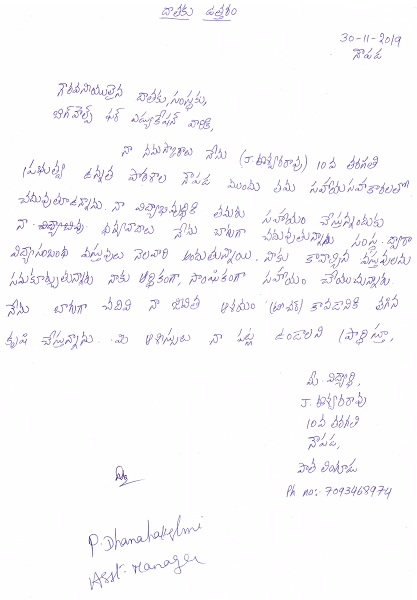 దాతకు ఉత్తరం
30-11-2019
నౌపడ
గౌరవనీయులైన దాతకు, సంస్థకు,
బిగ్ హెల్ప్ ఫర్ ఎడ్యుకేషన్ వారికి,
నా నమస్కారాలు నేను (J. ఈశ్వరరావు) 10వ తరగతి
ప్రభుత్వ ఉన్నత పాఠశాల నౌపడ నందు మీ సహాయసహకారాలతో
చదువుతూ ఉన్నాను. నా విద్యాభివృద్ధికి తమరు సహాయం చేస్తున్నందుకు
నా ధన్యవాదాలు నేను బాగుగా చదువుతున్నాను సంస్థ ద్వారా
విద్యాసంబంధ వస్తువులు నెలవారీ అందుతున్నాయి. నాకు కావాల్సిన వస్తువులను
సమకూర్చుతున్నారు నాకు ఆర్థికంగా, సాంఘికంగా సహాయం చేయుచున్నారు.
నేను బాగుగా చదివి నా జీవిత ఆశయం (టీచర్) కావడానికి తగిన
కృషి చేస్తున్నాను. మీ ఆశీస్సులు నా పట్ల ఉండాలని ప్రార్థిస్తూ,
మీ విద్యార్థి,
J. ఈశ్వరరావు
10వ తరగతి
నౌపడ,
పాత లింగూడు
Ph no:- 7093468974
P. Dhanalakshmi
Asst. Manager